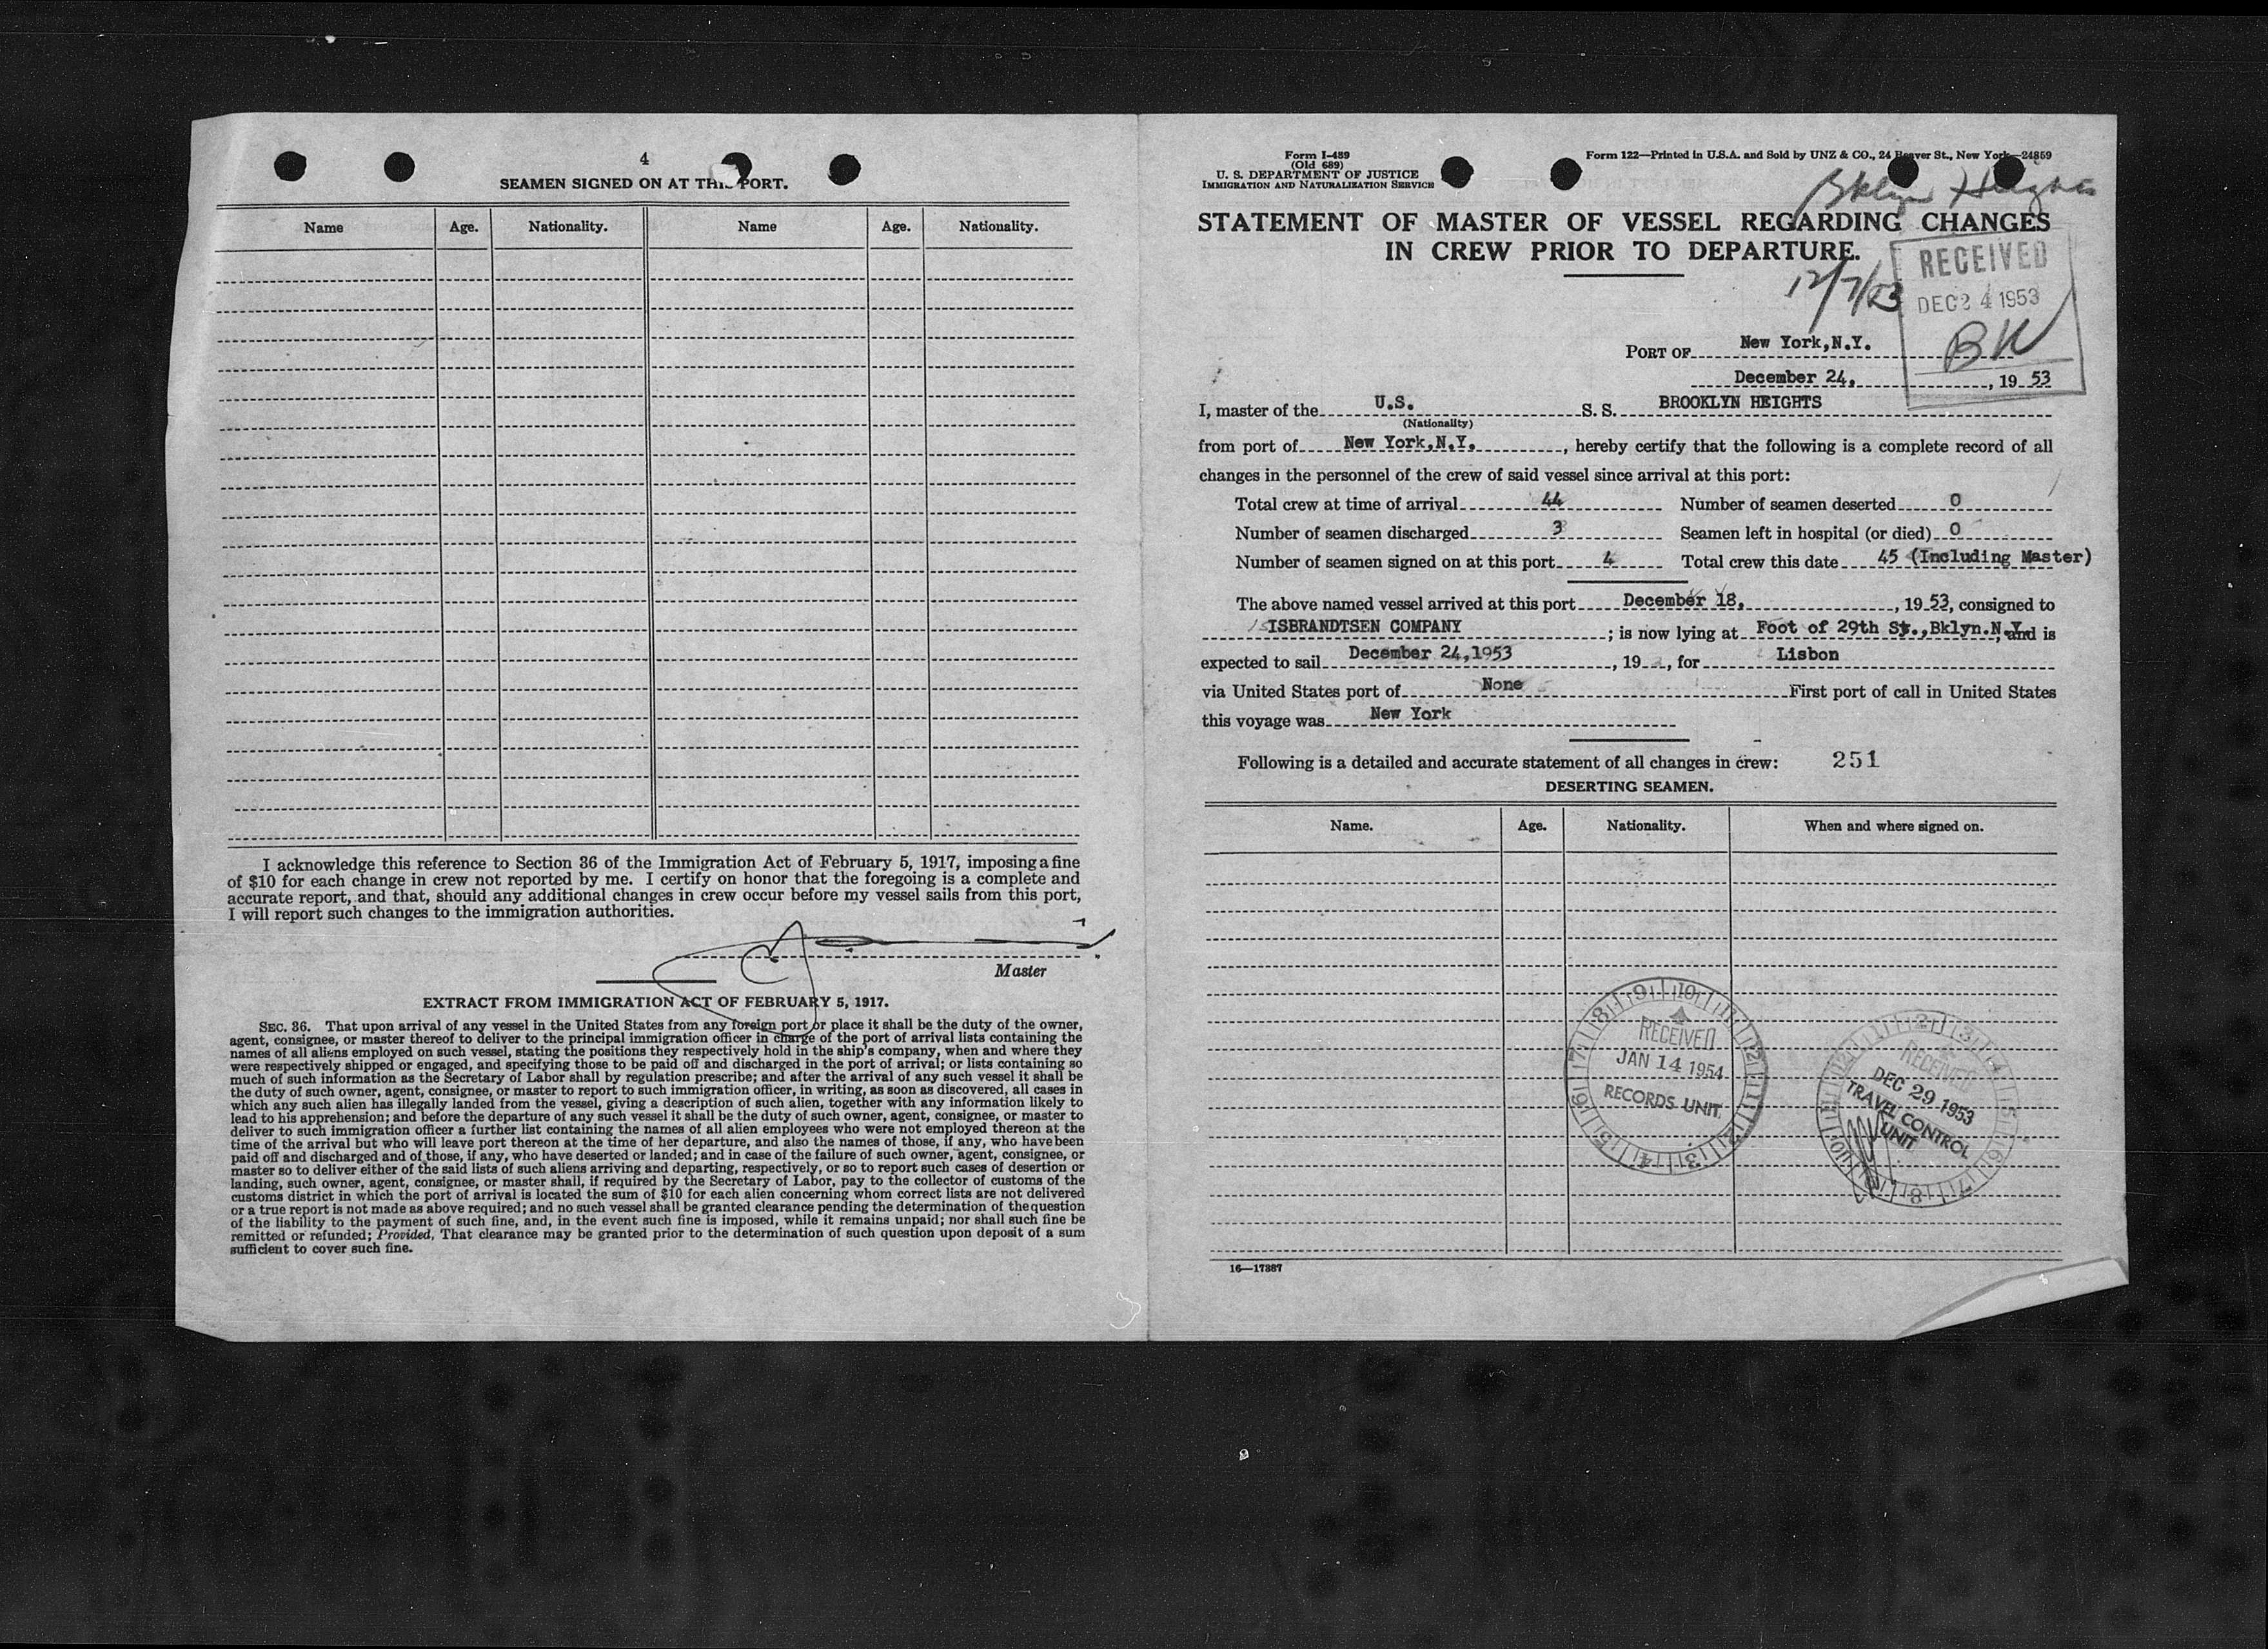 4
SEAMEN SIGNED ON AT THIS PORT.
Name Age. Nationality. Name Age. Nationality.
I acknowledge this reference to Section 36 of the Immigration Act of February 5, 1917, imposing a fine
of $10 for each change in crew not reported by me. I certify on honor that the foregoing is a complete and
accurate report, and that, should any additional changes in crew occur before my vessel sails from this port,
I will report such changes to the immigration authorities.
Master
EXTRACT FROM IMMIGRATION ACT OF FEBRUARY 5, 1917.
SEC. 36. That upon arrival of any vessel in the United States from any foreign port or place it shall be the duty of the owner,
agent, consignee, or master thereof to deliver to the principal immigration officer in charge of the port of arrival lists containing the
names of all aliens employed on such vessel, stating the positions they respectively hold in the ship's company, when and where they
were respectively shipped or engaged, and specifying those to be paid off and discharged in the port of arrival; or lists containing so
much of such information as the Secretary of Labor shall by regulation prescribe; and after the arrival of any such vessel it shall be
the duty of such owner, agent, consignee, or master to report to such immigration officer, in writing, as soon as discovered, all cases in
which any such alien has illegally landed from the vessel, giving a description of such alien, together with any information likely to
lead to his apprehension; and before the departure of any such vessel it shall be the duty of such owner, agent, consignee, or master to
deliver to such immigration officer a further list containing the names of all alien employees who were not employed thereon at the
time of the arrival but who will leave port thereon at the time of her departure, and also the names of those, if any, who have been
paid off and discharged and of those, if any, who have deserted or landed; and in case of the failure of such owner, agent, consignee, or
master so to deliver either of the said lists of such aliens arriving and departing, respectively, or so to report such cases of desertion or
landing, such owner, agent, consignee, or master shall, if required by the Secretary of Labor, pay to the collector of customs of the
customs district in which the port of arrival is located the sum of $10 for each alien concerning whom correct lists are not delivered
or a true report is not made as above required; and no such vessel shall be granted clearance pending the determination of the question
of the liability to the payment of such fine, and, in the event such fine is imposed, while it remains unpaid; nor shall such fine be
remitted or refunded; Provided, That clearance may be granted prior to the determination of such question upon deposit of a sum
sufficient to cover such fine.
Form I-489
(Old 689)
U. S. DEPARTMENT OF JUSTICE
IMMIGRATION AND NATURALIZATION SERVICE
Form 122—Printed in U.S.A. and Sold by UNZ & CO., 24 Beaver St., New York—24859
Bklyn Heights
STATEMENT OF MASTER OF VESSEL REGARDING CHANGES
IN CREW PRIOR TO DEPARTURE.
12/7/53
RECEIVED
DEC 24 1953
BK
PORT OF New York,N.Y.
December 24, , 19 53
I, master of the U.S. S. S. BROOKLYN HEIGHTS
(Nationality)
from port of New York,N.Y. , hereby certify that the following is a complete record of all
changes in the personnel of the crew of said vessel since arrival at this port:
Total crew at time of arrival 44 Number of seamen deserted 0
Number of seamen discharged 3 Seamen left in hospital (or died) 0
Number of seamen signed on at this port 4 Total crew this date 45 (Including Master)
The above named vessel arrived at this port December 18, , 19 53, consigned to
ISBRANDTSEN COMPANY ; is now lying at Foot of 29th St.,Bklyn.N.Y., and is
expected to sail December 24,1953 , 19 , for Lisbon
via United States port of None First port of call in United States
this voyage was New York
Following is a detailed and accurate statement of all changes in crew: 251
DESERTING SEAMEN.
Name. Age. Nationality. When and where signed on.
RECEIVED
JAN 14 1954
RECORDS UNIT
RECEIVED
DEC 29 1953
TRAVEL CONTROL
UNIT
16—17387